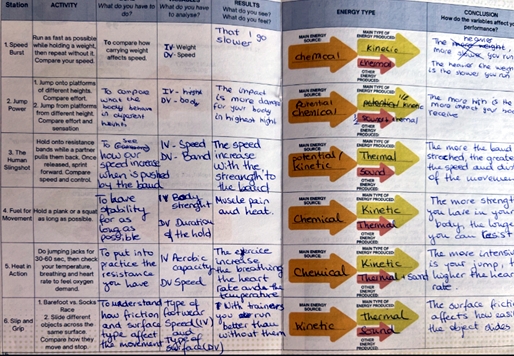 Station ACTIVITY
What do you have to do?
What do you have to analyse?
RESULTS
What do you see?
What do you feel?
ENERGY TYPE
CONCLUSION
How do the variables affect your performance?
1. Speed Burst
Run as fast as possible while holding a weight, then repeat without it. Compare your speed.
To compare how carrying weight affects speed.
IV- Weight
DV- Speed
That I go slower
MAIN ENERGY SOURCE:
chemical
MAIN TYPE OF ENERGY PRODUCED:
kinetic
OTHER ENERGY PRODUCED:
thermal
The heavier the weight is the slower you run
2. Jump Power
1. Jump onto platforms of different heights. Compare effort.
2. Jump from platforms from different height. Compare effort and sensation
To compare what the body behave in diferent heights.
IV- hight
DV- body
The impact is more damage to your body in highest hight.
MAIN ENERGY SOURCE:
potential chemical
MAIN TYPE OF ENERGY PRODUCED:
potential/kinetic
OTHER ENERGY PRODUCED:
thermal
The more high is the more
receive
3. The Human Slingshot
Hold onto resistance bands while a partner pulls them back. Once released, sprint forward. Compare speed and control.
To see how our speed increase when is pushed by the band
IV - Speed
DV - Band
The speed increase with the strenght to the band
MAIN ENERGY SOURCE:
potential/ kinetic
MAIN TYPE OF ENERGY PRODUCED:
Thermal
OTHER ENERGY PRODUCED:
Sound
The more the band streched, the greater the speed and
of the movement
4. Fuel for Movement
Hold a plank or a squat as long as possible.
To have stability for as long as possible
IV Body strength
DV Duration of the hold
Muscle pain and heat.
MAIN ENERGY SOURCE:
Chemical
MAIN TYPE OF ENERGY PRODUCED:
Kinetic
OTHER ENERGY PRODUCED:
Thermal
The more strength you have in your body, the longer you can resist
5. Heat in Action
Do jumping jacks for 30-60 sec, then check your temperature, breathing and heart rate to feel oxygen demand.
To put into practice the resistance you have
IV Aerobic capacity
DV Speed
The exercice increase the breathing the heart race and the temperature
MAIN ENERGY SOURCE:
Chemical
MAIN TYPE OF ENERGY PRODUCED:
Kinetic
OTHER ENERGY PRODUCED:
Thermal + Sound
The more intense is your jump, the higher the hear rate.
6. Slip and Grip
1. Barefoot vs. Socks Race
2. Slide different objects across the same surface. Compare how they move and stop.
To understand how friction and surface type affect the movement
Type of footwear Speed (IV) and Type of surface (DV)
With trainers you run better than without them
MAIN ENERGY SOURCE:
Kinetic
MAIN TYPE OF ENERGY PRODUCED:
Thermal
OTHER ENERGY PRODUCED:
Sound
The surface friction affects how easily the object slides